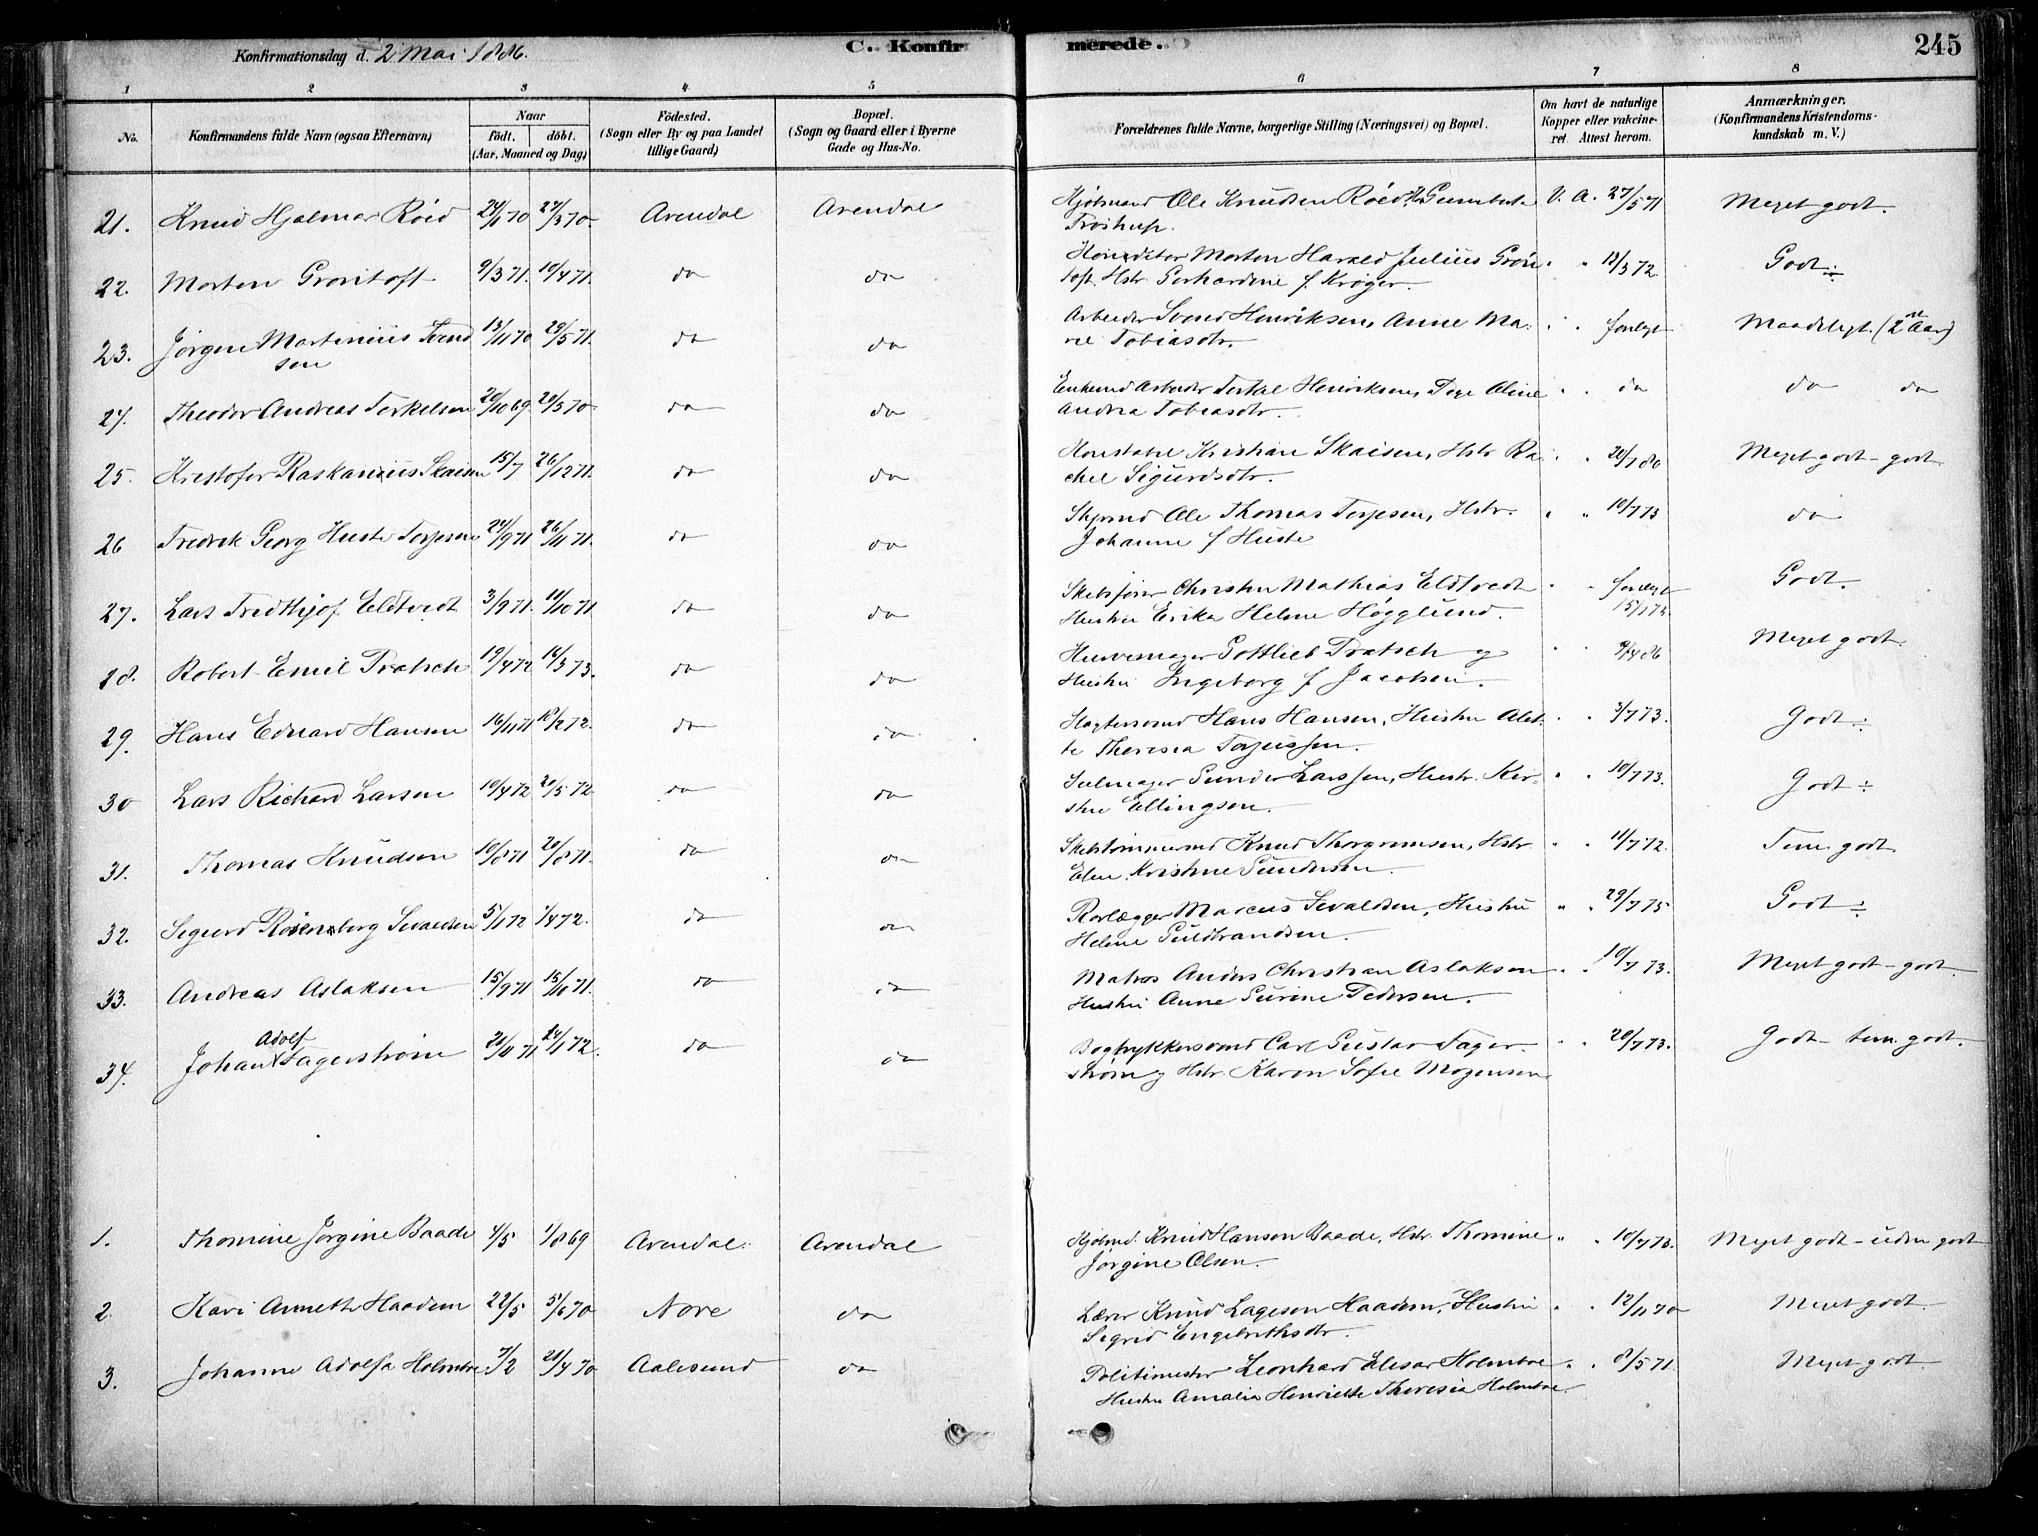 Konfirmationsdag d. 2 Mai 1886.
C. Konfirmerede.
245
1 2 3 4 5 6 7 8
No. Konfirmandens fulde Navn (ogsaa Efternavn) Naar født. døbt. (Aar, Maaned og Dag) Fødested. (Sogn eller By og paa Landet tillige Gaard) Bopæl. (Sogn og Gaard eller i Byerne Gade og Hus-No. Forældrenes fulde Navne, borgerlige Stilling (Næringsvei) og Bopæl. Om havt de naturlige Kopper eller vakcineret. Attest herom. Anmærkninger. (Konfirmandens Kristendomskundskab m. V.)
21. Knud Hjalmar Röed 70 27/3 70 Arendal Arendal Ole Knudsen Röed V. A. 27/5 71 Meget godt.
22. Morten Grontoft 9/3 71. 10/4 71. do do Morten Harald Julius Grön
toft. Hstr. Gerhardine f. Krøger. " " 13/3 72. Godt ÷
23. Jörgen Martinius Svend
sen 13/11 70 29/5 71. do do Arbeider Svend Henriksen, Anne Ma-
rie Tobiasdtr. " " Maadeligt (2 Aar)
27. Theodor Andreas Torkelsen 20/10 69. 20/5 70. do do Arbeider Torkal Henriksen, Pige Oline
Andrea Tobiasdtr. " " do do do
25. Kristofer Skaisen 15/7 26/12 71. do do Konstabel Kristian Skaisen, Hstr. Ra-
chel Sigurdsdtr. " " 20/7 80 Meget godt - godt
26 Fredrik Georg Huste Torjesen 24/9 71 26/11 71. do do Ole Thomas Torjesen, Hstr.
Johanne f Huste " " 10/7 73 do
27. Lars Fredthjof Eldtvedt 3/9 71. 11/10 71. do do Skibsfører Christen Mathias Eldtvedt
Hustru Erika Helene Høgglund. " " Godt.
28. Robert Emil Tratsch 19/4 72 16/3 73. do do Gottlieb Tratsch og
Hustru Ingeborg f Jacobsen. " " 9/4 86 Meget godt.
29. Hans Edvard Hansen 16/11 71 18/2 72. do do Hans Hansen, Hustru Alet-
te Theresia Torjussen. " " 3/7 73. Godt ÷
30 Lars Richard Larsen 10/4 72 20/5 72 do do Seilmager Gunder Larssen, Hustr. Kir-
stine Ellingsen. " " 10/7 73. Godt ÷
31. Thomas Knudsen 10/8 71 20/8 71. do do Skibstømmermd Knud Thorgrimsen, Hstr.
Elen Kristine Gundersen. " " 11/7 72. Tem. godt
32. Sigurd Rosenberg Sevaldsen 5/1 72 1/4 72. do do Rorlægger Marcus Sevaldsen, Hustru
Helene Guldbrandsen. " " 29/7 75 Godt ÷
33. Andreas Aslaksen 15/9 71 15/10 71. do do Matros Anders Christian Aslaksen
Hustru Anne Gurine Pedersen. " " 10/7 73. Meget godt - godt.
34. Johan Adolf Fagerstrøm 21/11 71 14/1 72. do do Bogtrykkersvend Carl Gustav Fager-
strøm og Hstr. Karen Sofie Mogensen " " 20/7 73. Godt - tem. godt.
1. Thomine Jörgine Baade 4/5 1/8 69 Arendal. Arendal Knud Hansen Baade, Hstr. Thomine
Jörgine Olsen. " " 10/7 73. Meget godt - uden godt
2. Kari Annette Haadem 22/5 5/6 70 Nore do Lærer Knud Lageson Haadem, Hustru
Sigrid Engebrethsdtr. " " 12/11 70 Meget godt.
3. Johanne Adolfa Holmboe 7/2 21/4 70 Aalesund do Politimester Leonhard Holmboe
Hustru Amalia Henriette Theresia Holmboe. " " 8/5 71 Meget godt.